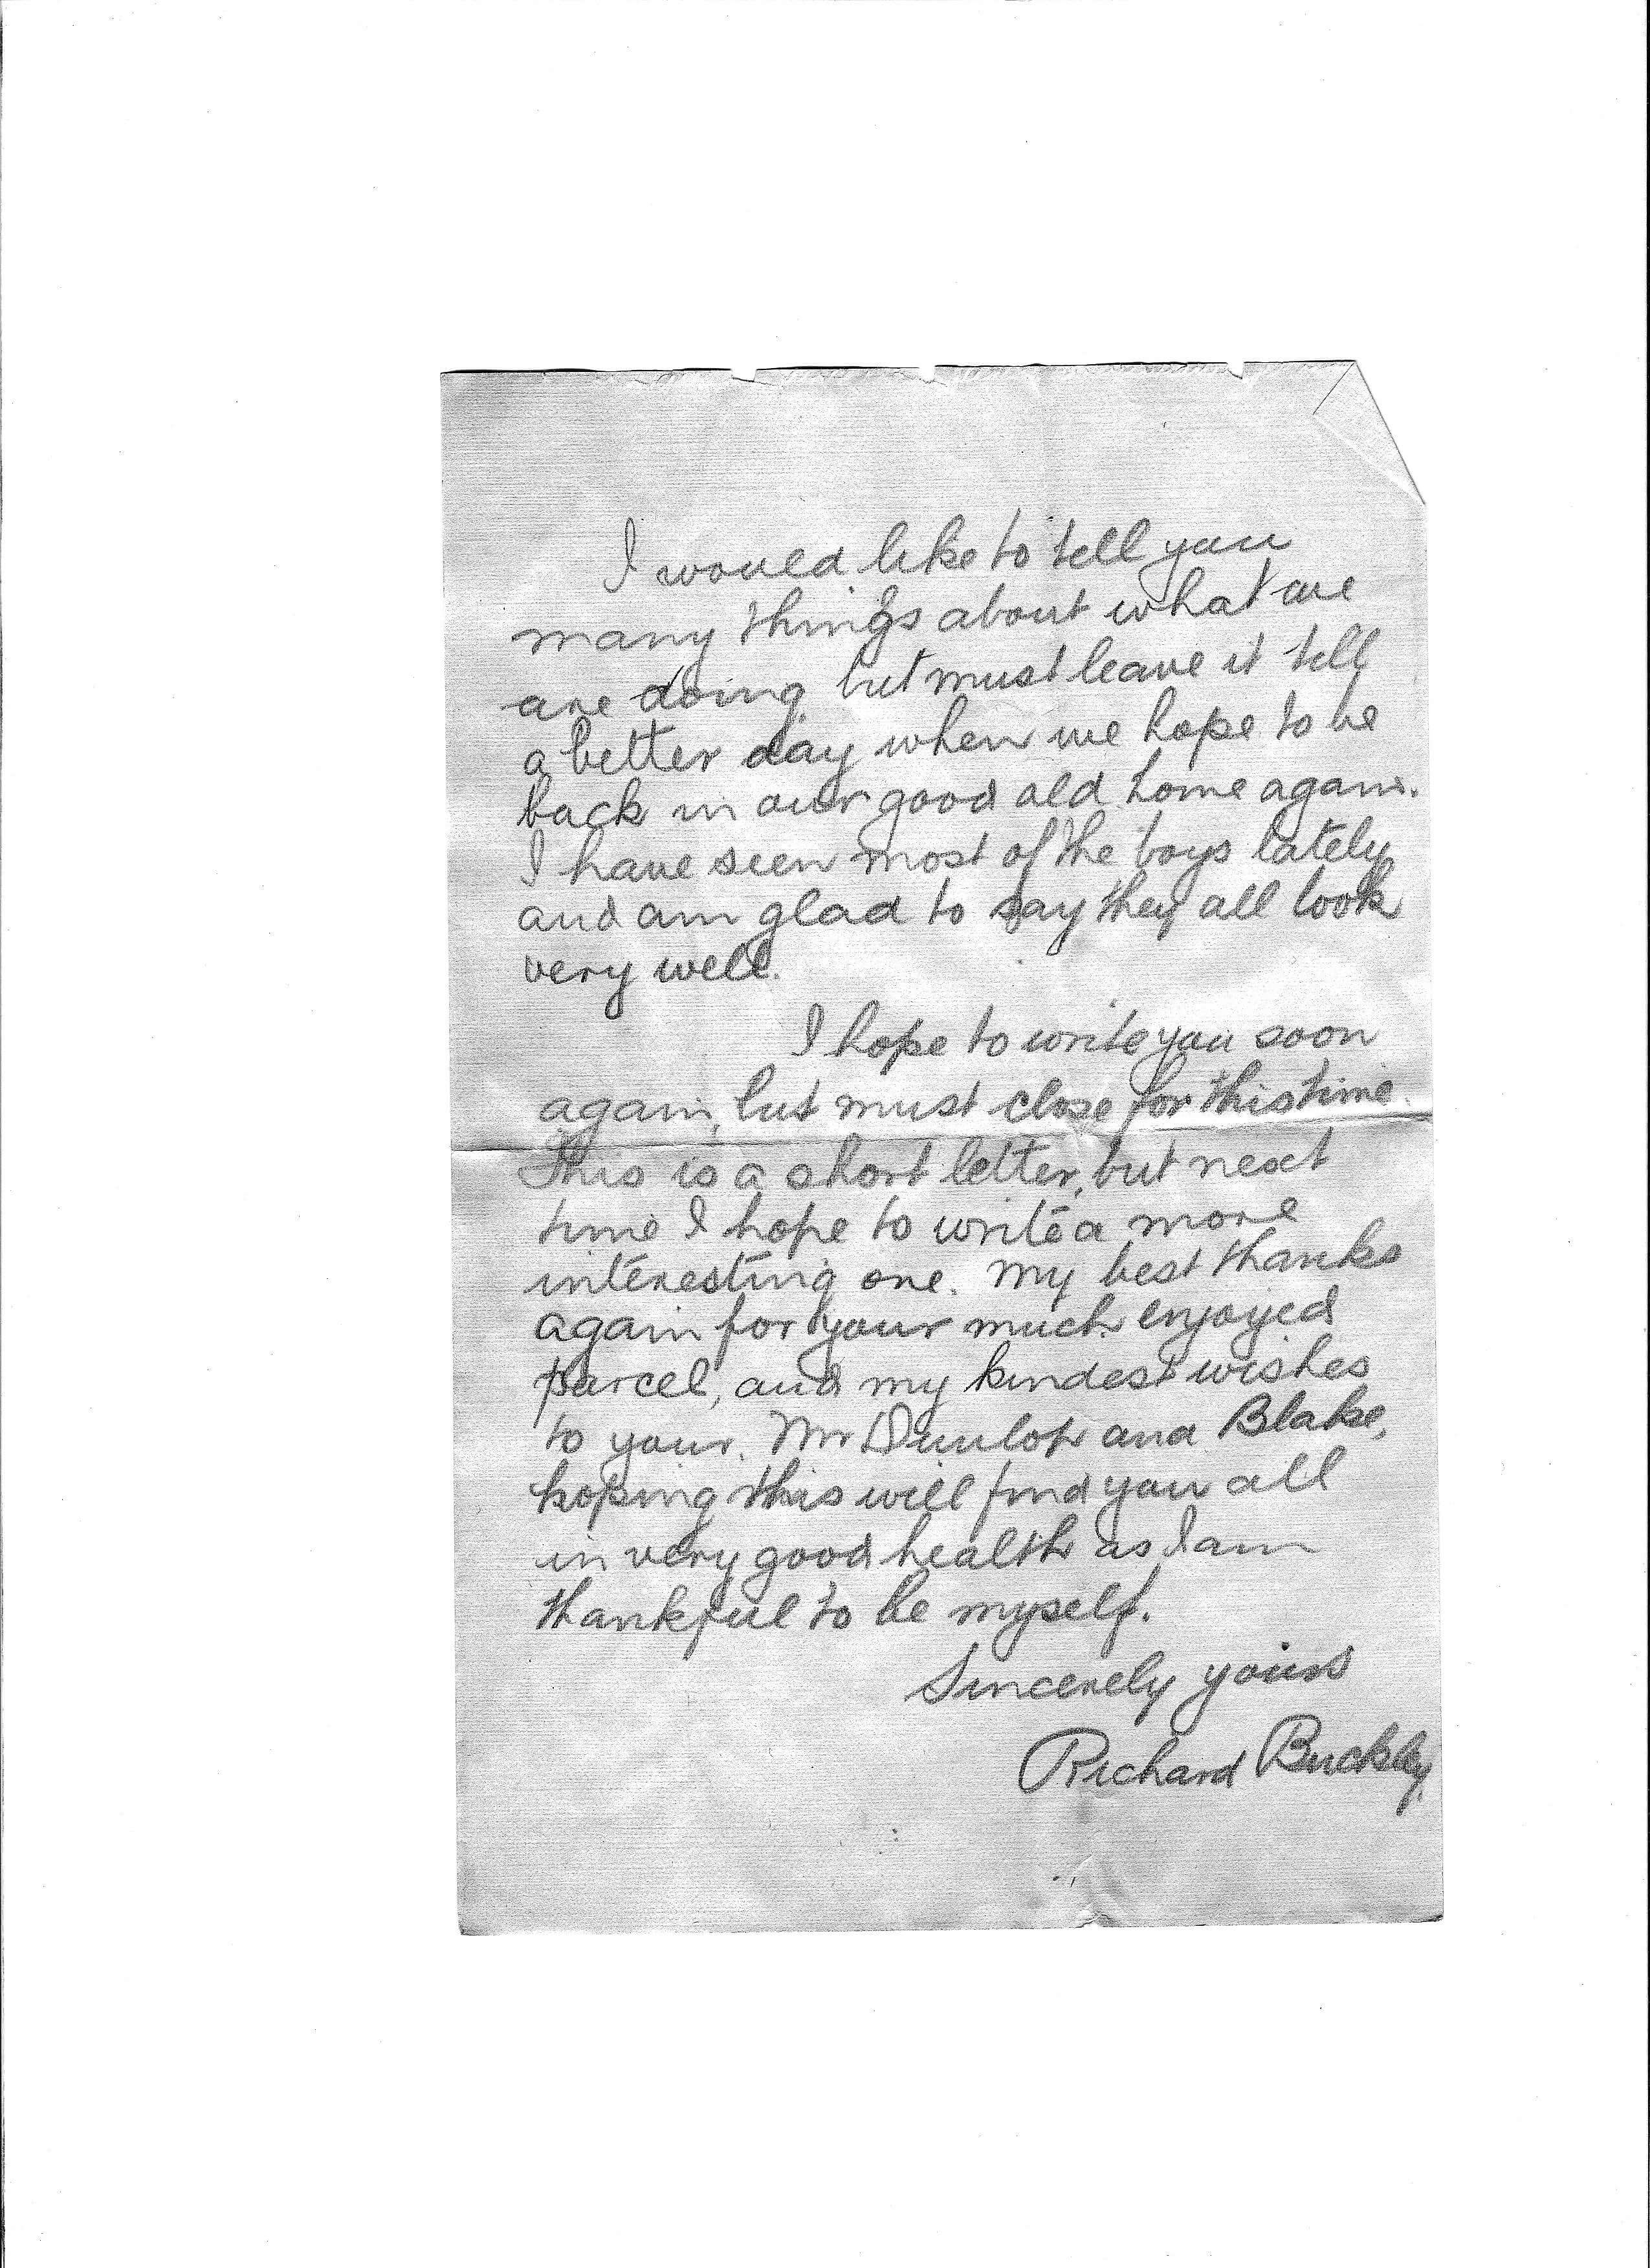 I would like to tell you
many things about what we
are doing but must leave it till
a better day when we hope to be
back in our good old home again.
I have seen most of the boys lately
and am glad to say they all look
very well.
I hope to write you soon
again, but must close for this time.
This is a short letter, but next
time I hope to write a more
interesting one. My best thanks
again for your much enjoyed
parcel, and my kindest wishes
to your. Mr Dunlop and Blake,
hoping this will find you all
in very good health as I am
thankful to be myself.
Sincerely yours
Richard Buckley.